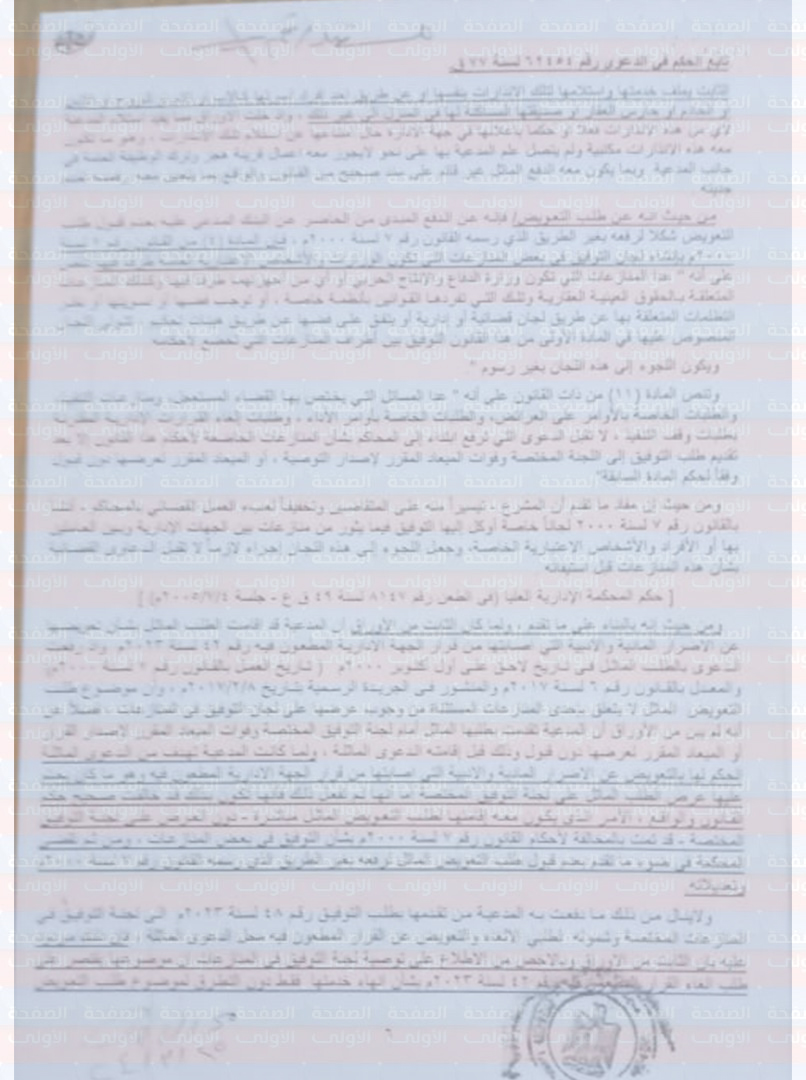 تابع الحكم في الدعوى رقم ٦٢٤٥٤ لسنة ٧٧ ق
الثابت بملف خدمتها واستلامها لتلك الانذارات بنفسها او عن طريق احد افراد اسرتها
أو الخادم أو حارس العقار او صديقتها في المنزل الى غير ذلك ، وإذ خلت الأوراق مما يفيد استلام المدعية
لأي من هذه الانذارات فعلا أو حكما باعلانها في جهة الادارة حال امتناعها عن استلام تلك الانذارات ، وهو ما تكون
معه هذه الانذارات مكتبية ولم يتصل علم المدعية بها على نحو لايجوز معه اعمال قرينة هجر وترك الوظيفة العامة في
جانب المدعية وبما يكون معه الدفع الماثل غير قائم على سند صحيح من القانون والواقع بما يتعين معه رفضه لعدم
جديته
من حيث انه عن طلب التعويض/ فإنه عن الدفع المبدى من الحاضر عن البنك المدعى عليه بعدم قبول طلب
التعويض شكلا لرفعه بغير الطريق الذي رسمه القانون رقم ٧ لسنة ٢٠٠٠م ، فإن المادة (٤) من القانون رقم ٧ لسنة
٢٠٠٠م بإنشاء لجان التوفيق في بعض المنازعات التي تكون الوزارات والأشخاص الاعتبارية العامة طرفا فيها تنص
على أنه " عدا المنازعات التي تكون وزارة الدفاع والإنتاج الحربي أو أي من أجهزتهما طرفا فيها وكذلك المنازعات
المتعلقة بالحقوق العينية العقارية وتلك التي تفردها القوانين بأنظمة خاصة ، أو توجب فضها أو تسويتها أو نظر
التظلمات المتعلقة بها عن طريق لجان قضائية أو إدارية أو يتفق على فضها عن طريق هيئات تحكيم ، تتولى اللجان
المنصوص عليها في المادة الأولى من هذا القانون التوفيق بين أطراف المنازعات التي تخضع لأحكامه
ويكون اللجوء إلى هذه اللجان بغير رسوم "
وتنص المادة (١١) من ذات القانون على أنه " عدا المسائل التي يختص بها القضاء المستعجل، ومنازعات التنفيذ،
والطلبات الخاصة بالأوامر على العرائض، والطلبات الخاصة بأوامر الأداء ، وطلبات إلغاء القرارات الإدارية المقترنة
بطلبات وقف التنفيذ ، لا تقبل الدعوى التي ترفع ابتداء إلى المحاكم بشأن المنازعات الخاضعة لأحكام هذا القانون إلا بعد
تقديم طلب التوفيق إلى اللجنة المختصة وفوات الميعاد المقرر لإصدار التوصية ، أو الميعاد المقرر لعرضها دون قبول
وفقاً لحكم المادة السابقة"
ومن حيث إن مفاد ما تقدم أن المشرع ، تيسيراً منه على المتقاضين وتخفيفاً لعبء العمل القضائي بالمحاكم ، أنشأ
بالقانون رقم ٧ لسنة ٢٠٠٠ لجاناً خاصة أوكل إليها التوفيق فيما يثور من منازعات بين الجهات الإدارية وبين العاملين
بها أو الأفراد والأشخاص الاعتبارية الخاصة، وجعل اللجوء إلى هذه اللجان إجراء لازماً لا تقبل الدعاوى القضائية
بشأن هذه المنازعات قبل استيفائه
[ حكم المحكمة الإدارية العليا (في الطعن رقم ٨١٤٧ لسنة ٤٩ ق ع - جلسة ٢٠٠٥/٧/٤م) ]
ومن حيث إنه بالبناء على ما تقدم ، ولما كان الثابت من الأوراق ان المدعية قد اقامت الطلب الماثل بشأن تعويضها
عن الاضرار المادية والادبية التي اصابتها من قرار الجهة الادارية المطعون فيه رقم ٤٢ لسنة ٢٠٢٣م وإذ رفعت
الدعوى بالطلب الماثل في تاريخ لاحق على أول أكتوبر ٢٠٠٠م ( تاريخ العمل بالقانون رقم ٧ لسنة ٢٠٠٠م)
والمعدل بالقانون رقم ٦ لسنة ٢٠١٧م والمنشور في الجريدة الرسمية بتاريخ ٢٠١٧/٢/٨م ، وأن موضوع طلب
التعويض الماثل لا يتعلق بإحدى المنازعات المستثناة من وجوب عرضها على لجان التوفيق في المنازعات ، فضلا عن
أنه لم يبن من الأوراق أن المدعية تقدمت بطلبها الماثل أمام لجنة التوفيق المختصة وفوات الميعاد المقرر لإصدار القرار
أو الميعاد المقرر لعرضها دون قبول وذلك قبل إقامته الدعوى الماثلة ، ولما كانت المدعية تهدف من الدعوى الماثلة
الحكم لها بالتعويض عن الاضرار المادية والادبية التي اصابتها من قرار الجهة الادارية المطعون فيه وهو ما كان يحتم
عليها عرض الطلب الماثل على لجنة التوفيق المختصة الا أنها لم تفعل ذلك فإنها تكون بذلك قد خالفت صحيح حكم
القانون والواقع ، الأمر الذي يكون معه إقامتها لطلب التعويض الماثل مباشرة - دون العرض على لجنة التوفيق
المختصة - قد تمت بالمخالفة لأحكام القانون رقم ٧ لسنة ٢٠٠٠م بشأن التوفيق في بعض المنازعات ، ومن ثم تقضي
المحكمة في ضوء ما تقدم بعدم قبول طلب التعويض الماثل لرفعه بغير الطريق الذي رسمه القانون رقم ٧ لسنة ٢٠٠٠م
وتعديلاته.
ولاينال من ذلك ما دفعت به المدعية من تقدمها بطلب التوفيق رقم ٤٨ لسنة ٢٠٢٣م الى لجنة التوفيق في
المنازعات المختصة وشموله لطلبي الالغاء والتعويض عن القرار المطعون فيه محل الدعوى الماثلة ، فإن ذلك مردود
عليه بأن الثابت من الاوراق وبالاخص من الاطلاع على توصية لجنة التوفيق في المنازعات ان موضوعها يقتصر على
طلب الغاء القرار المطعون فيه رقم ٤٢ لسنة ٢٠٢٣م بشأن انهاء خدمتها فقط دون التطرق لموضوع طلب التعويض